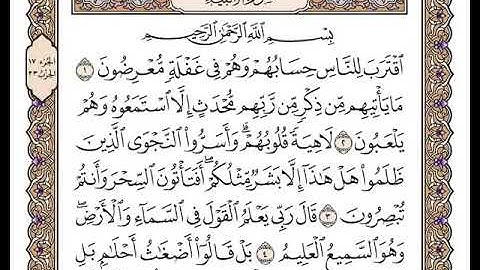 الجزء ١٧
بِسْمِ ٱللَّهِ ٱلرَّحْمَٰنِ ٱلرَّحِيمِ
ٱقْتَرَبَ لِلنَّاسِ حِسَابُهُمْ وَهُمْ فِى غَفْلَةٍ مُّعْرِضُونَ ١
مَا يَأْتِيهِم مِّن ذِكْرٍ مِّن رَّبِّهِم مُّحْدَثٍ إِلَّا ٱسْتَمَعُوهُ وَهُمْ
يَلْعَبُونَ ٢ لَاهِيَةً قُلُوبُهُمْ ۗ وَأَسَرُّوا۟ ٱلنَّجْوَى ٱلَّذِينَ
ظَلَمُوا۟ هَلْ هَٰذَآ إِلَّا بَشَرٌ مِّثْلُكُمْ ۖ أَفَتَأْتُونَ ٱلسِّحْرَ وَأَنتُمْ
تُبْصِرُونَ ٣ قَالَ رَبِّى يَعْلَمُ ٱلْقَوْلَ فِى ٱلسَّمَآءِ وَٱلْأَرْضِ ۖ
وَهُوَ ٱلسَّمِيعُ ٱلْعَلِيمُ ٤ بَلْ قَالُوٓا۟ أَضْغَٰثُ أَحْلَٰمٍۭ بَلِ